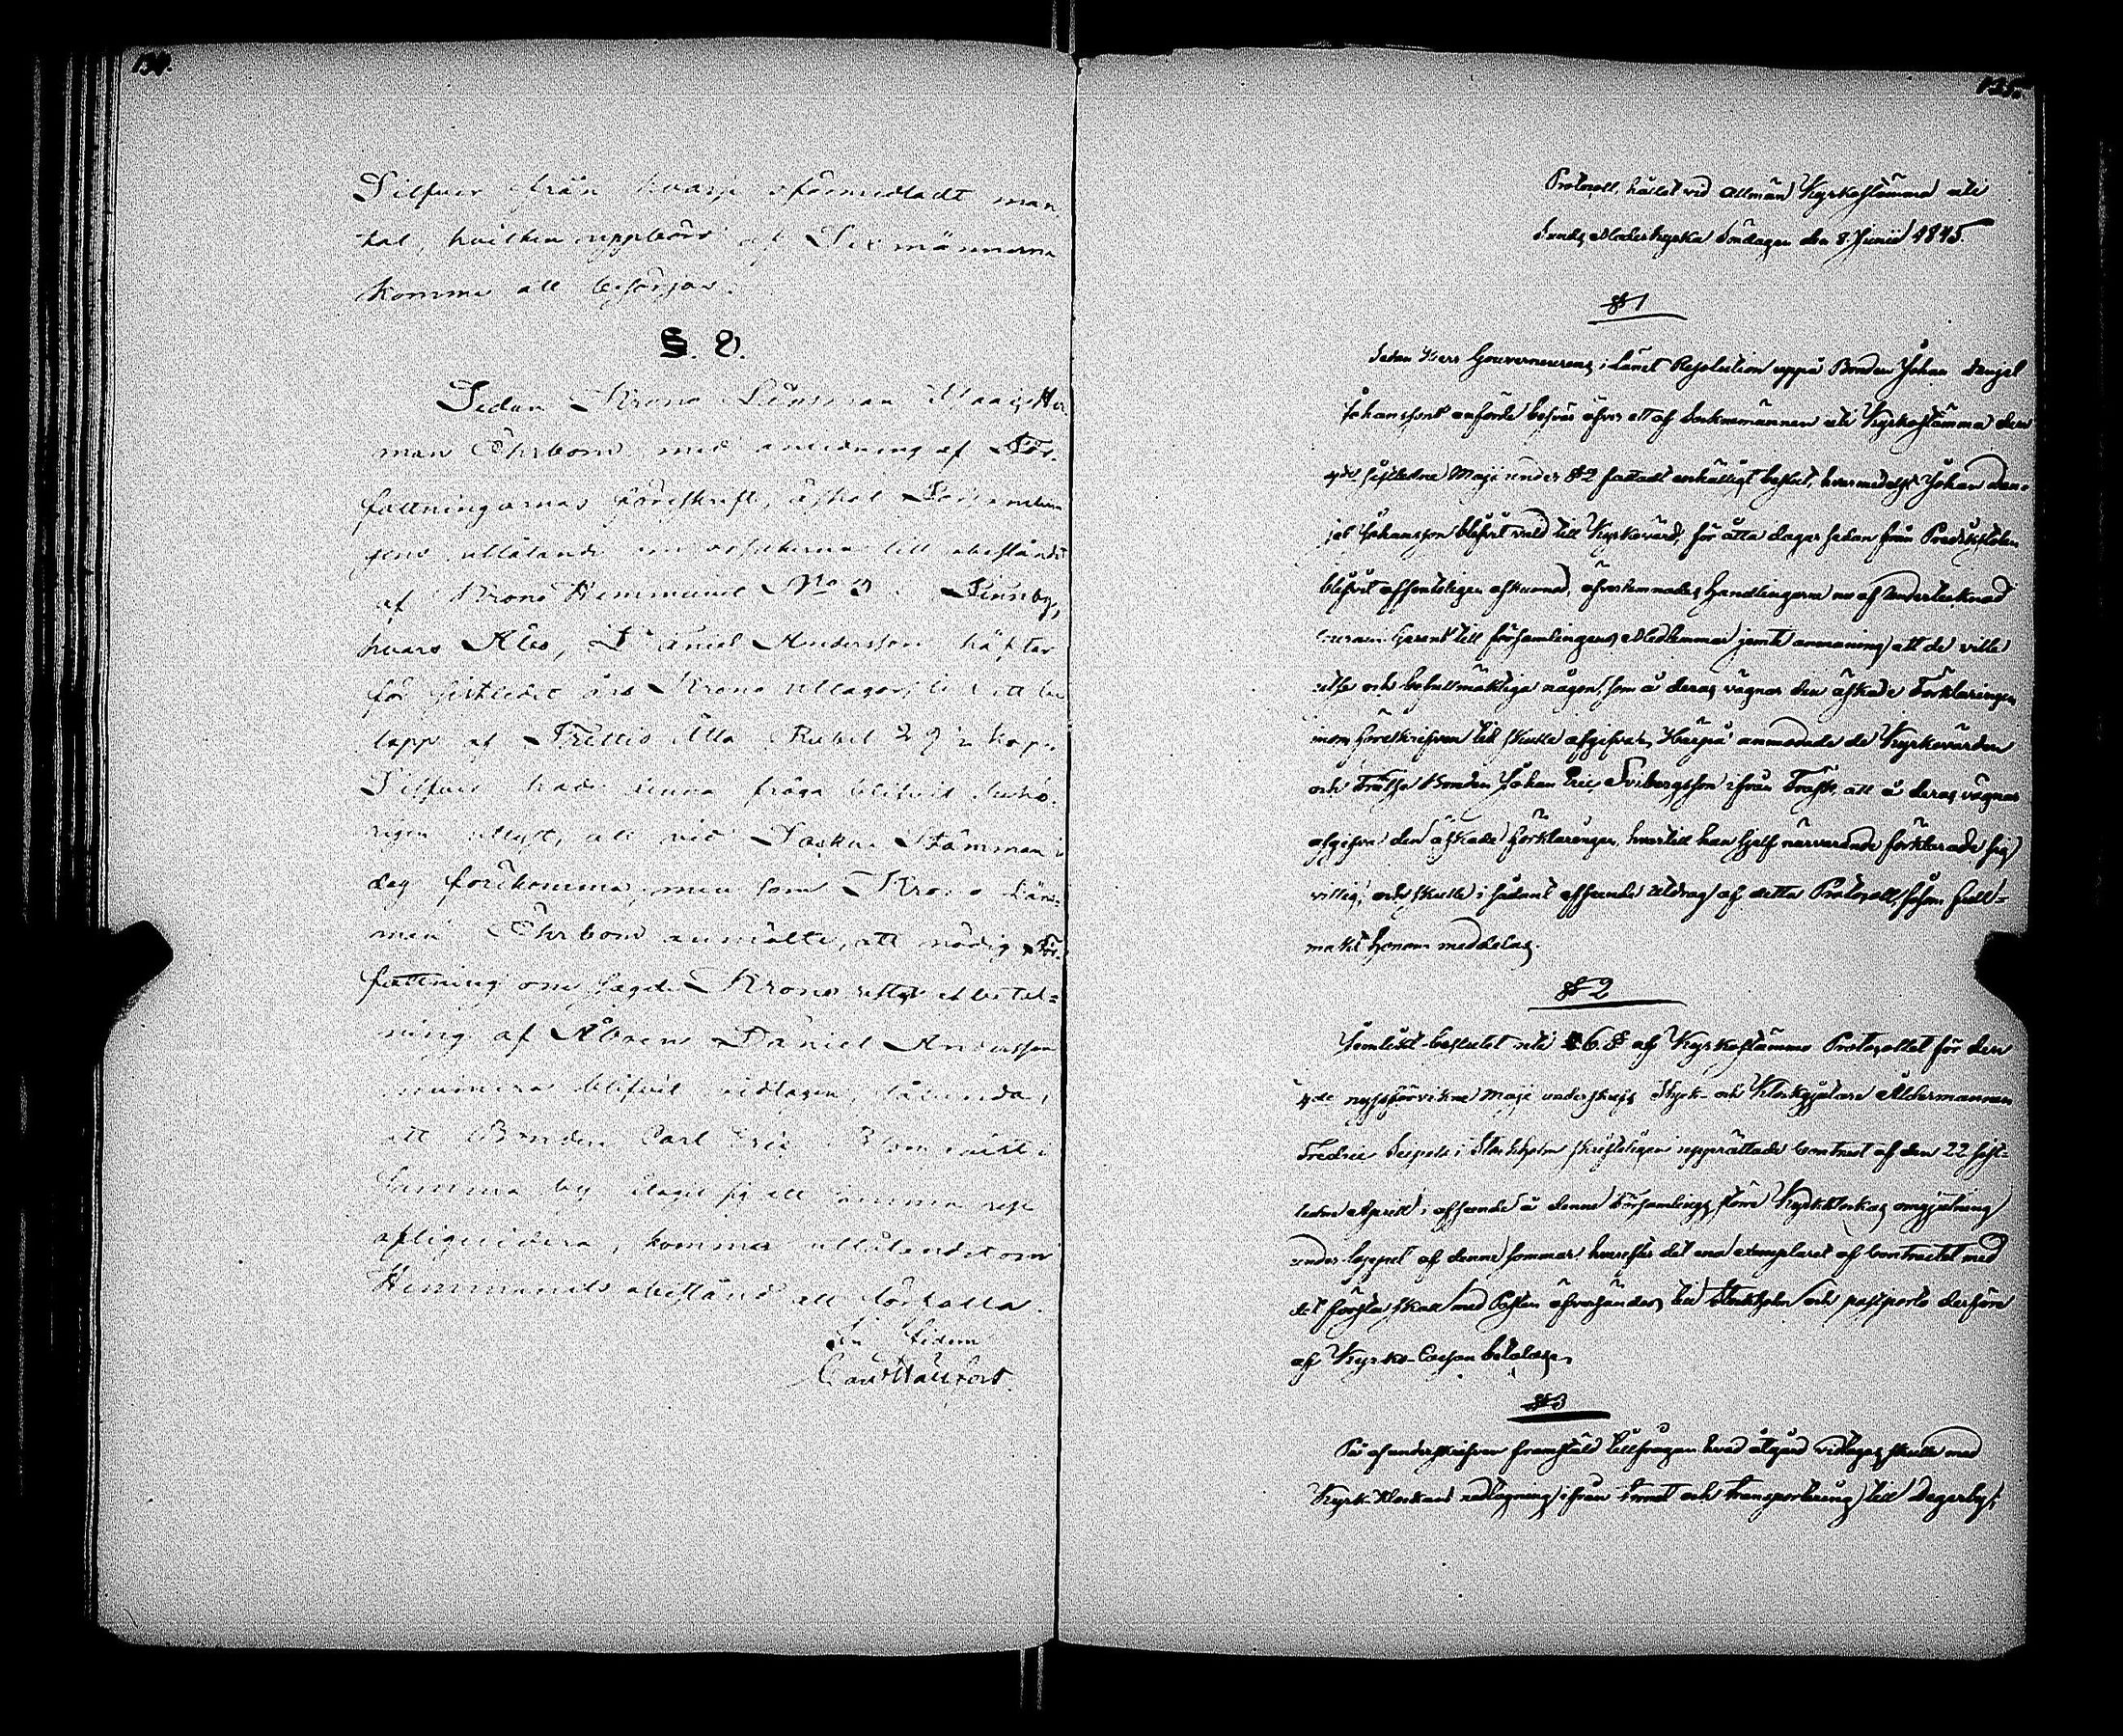 134.
Silfver från hvarje oförmedladt man¬
tal, hvilken uppbörd af Sexmännerna
kommer att besörjas.
§. 8.
Sedan Krono Länsman Her¬
man Öhrbom med anledning af För¬
fattningarnas föreskrift, äskat
utlåtande om orsakerna till obeståndet
af Krono Hemmanet No 3 Finnby,
hvars Åbo, Daniel Andersson häftar
för sistledet års Krono utlagor till ett be¬
lopp af Trettio Åtta Rubel 29 ½ kop.
Silfver hade denna fråga blifvit
utlyst, att vid Sockne Stämman i
dag förekomma; men som Krono Läns¬
man Öhrbom anmälte, att nödig För¬
fattning om sagde Krono betal¬
ning af Åboen Daniel Andersson
numera blifvit vidtagen, sålunda,
att Bonden Carl Eric i
samma by åtagit sig att samma rest
afliquidera, kommer utlåtandet om
Hemmanets obestånd att förfalla.
In fidem
135.
Protocoll, hållet vid allmän Kyrkostämma uti
Sunds Moderkyrka Söndagen den 8 Junii 1845.
§ 1
Sedan Herr Gouverneurens i Länet Resolution uppå Bonden Johan Danjel
Johanssons anförde besvär öfver ett af Socknemännen uti Kyrkostämma den
4de sistledne Maji under § 2 fattadt enhälligt beslut, hvarmedelst Johan Dan¬
jel Johansson blifvit vald till Kyrkovärd, för åtta dagar sedan från Predikstolen
blifvit offenteligen afkunnad, öfverlemnades Handlingarne nu af Undertecknad
till församlingens Medlemmar jemte anmaning att de ville
utse och befullmäktiga någon, som å deras vägnar den äskade Förklaringen
inom föreskrifven tid skulle afgifva, Härpå anmodade de Kyrkovärden
och Frälse Bonden Johan Eric Svibergsson ifrån Träsk, att å deras vägnar
afgifva den äskade förklaringen, hvartill han sjelf närvarande förklarade sig
villig, och skulle i sådant afseende utdrag af detta Protocoll, såsom full¬
makt honom meddelas.
§ 2
Jemlikt beslutet uti 6 § af Kyrkostämmo Protocollet för den
4de nyssförvikne Maji underskrefs Styck- och Klockgjutare Åldermannen
Fredric i Stockholm skrifteligen upprättade Contract af den 22 sist¬
ledne April i afseende å denne Församlings större Kyrkklockas omgjutning
under loppet af denne sommar, hvarefter det ena exemplaret af Contractet med
det första skall med Posten öfversändas till Stockholm och postporto derföre
af Kyrko-Cassan betalas.
§ 3
På af underskrifven framstäld tillfrågan hvad åtgärd vidtagas skulle med
Kyrk-Klockans nedtagning ifrån tornet och transportering till Degerby,